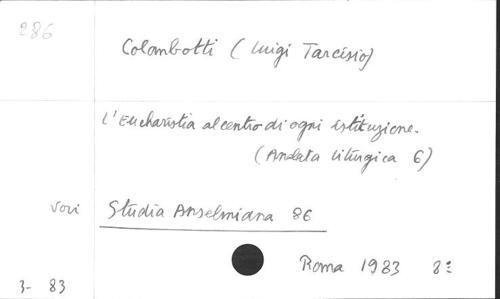 286
Colombotti (Luigi Tarcisio)
L'Eucharistia al centro di ogni istituzione.
(Andata liturgica 6)
Studia Anselmiana 86
Roma 1983 8º
3- 83